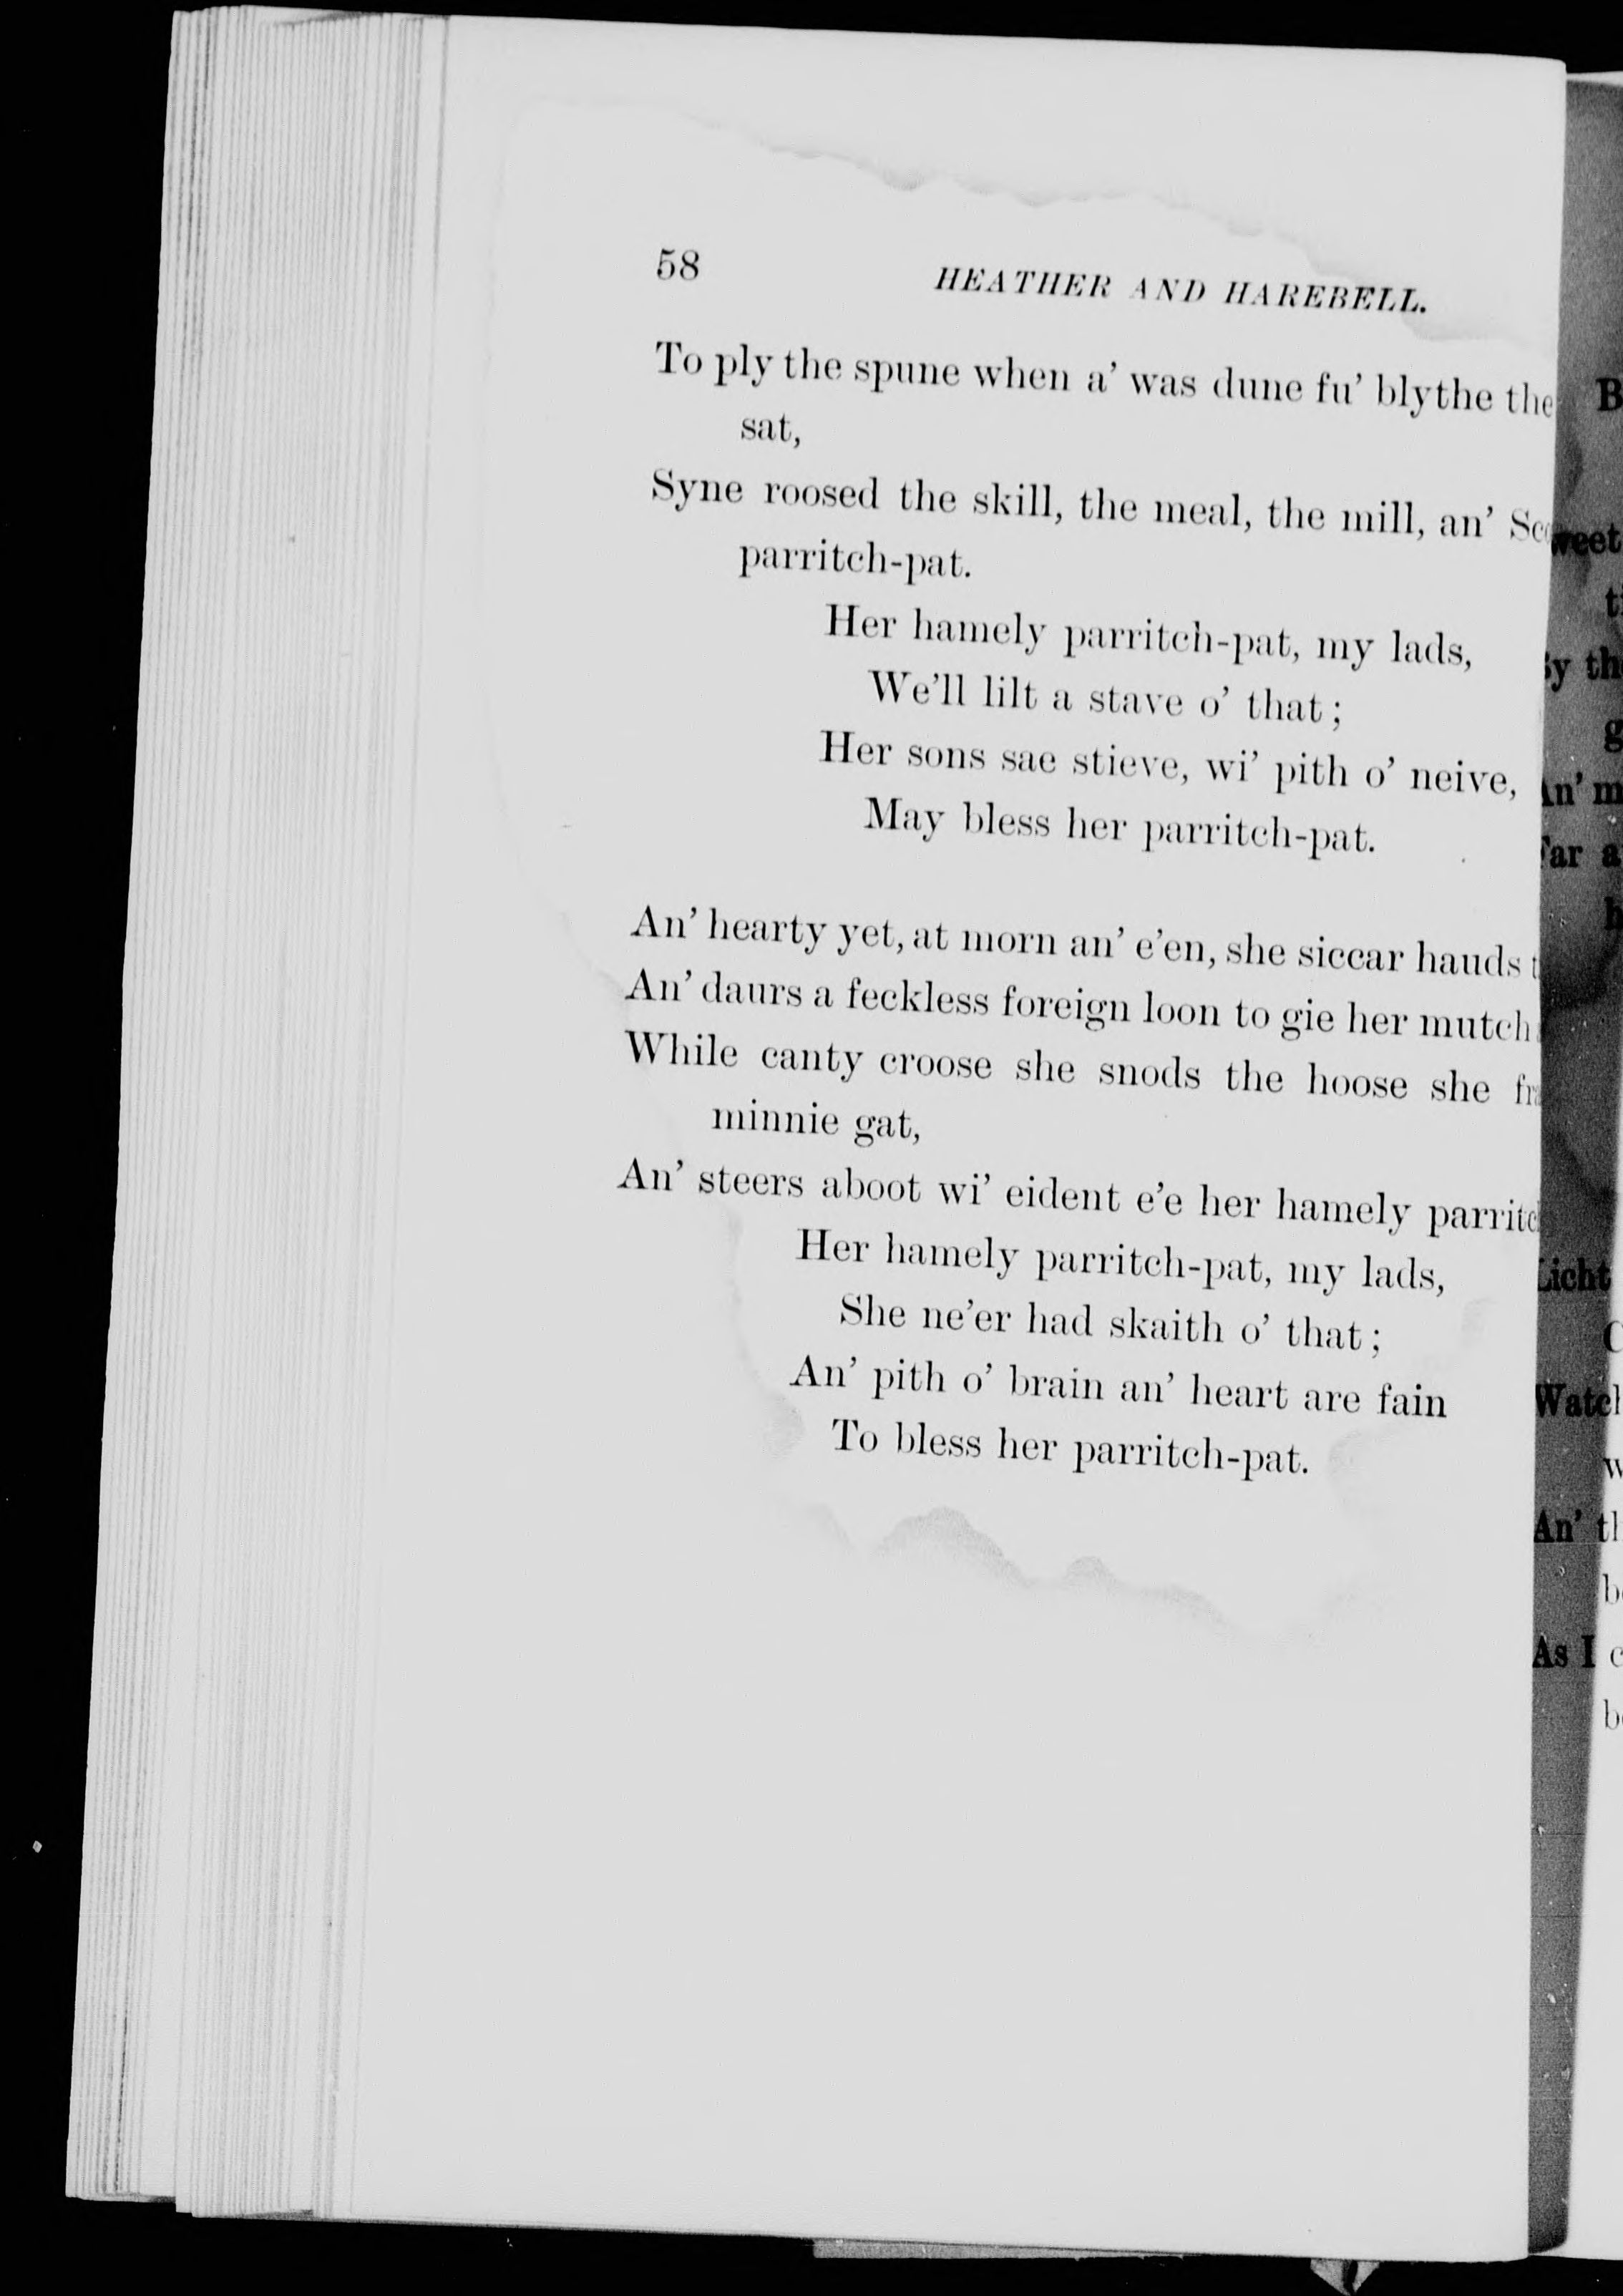 58
HEATHER AND HAREBELL.
To ply the spune when a' was dune fu' blythe
sat,
Syne roosed the skill, the meal, the mill, an'
parritch-pat.
Her hamely parritch-pat, my lads,
We'll lilt a stave o' that;
Her sons sae stieve, wi' pith o' neive,
May bless her parritch-pat.
An' hearty yet, at morn an' e'en, she siccar hauds
An' daurs a feckless foreign loon to gie her mutch
While canty croose she snods the hoose she
minnie gat,
An' steers aboot wi' eident e'e her hamely
Her hamely parritch-pat, my lads,
She ne'er had skaith o' that;
An' pith o' brain an' heart are fain
To bless her parritch-pat.
An'
As I